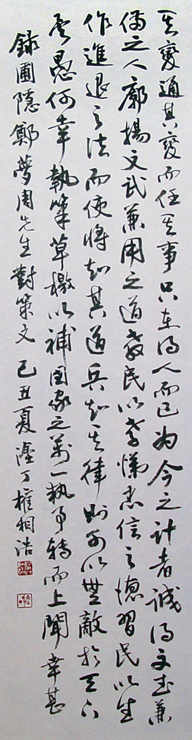 其變通其變而任其事只在得人而已為今之計者誠得文武兼
備之人廓揚文武兼用之道教民以孝悌忠信之德習民以坐
作進退之法而使將知其道兵知其律則可以無敵於天下
矣愚何幸執筆草檄以補國家之萬一執事轉而上聞幸甚
錄圃隱鄭夢周先生對策文 己丑夏 塗丁權相浩